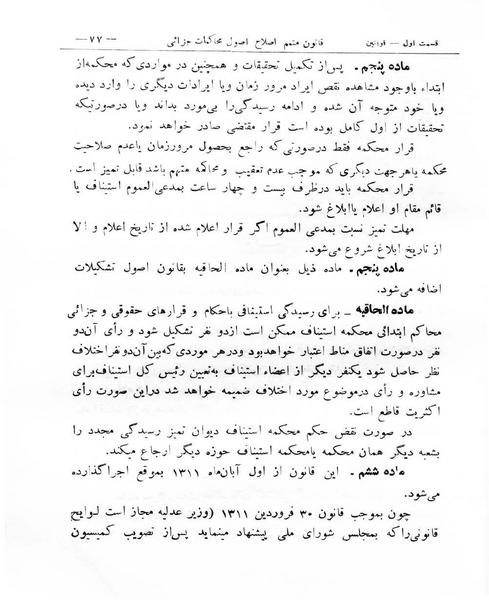 قسمت اول — قوانین قانون متمم اصلاح اصول محاکمات جزائی —۷۷—
ماده پنجم ـ پس‌از تکمیل تحقیقات و همچنین در مواردی که محکمه‌از
ابتداء باوجود مشاهده نقص ایراد مرور زمان ویا ایرادات دیگری را وارد دیده
ویا خود متوجه آن شده و ادامه رسیدگی‌را بی‌مورد بداند ویا درصورتیکه
تحقیقات از اول کامل بوده است قرار مقتضی صادر خواهد نمود.
قرار محکمه فقط درصورتی‌که راجع بحصول مرورزمان یاعدم صلاحیت
محکمه یاهرجهت دیگری که موجب عدم تعقیب و محاکمه متهم باشد قابل تمیز است.
قرار محکمه باید درظرف بیست و چهار ساعت بمدعی‌العموم استیناف یا
قائم مقام او اعلام یاابلاغ شود.
مهلت تمیز نسبت بمدعی العموم اگر قرار اعلام شده از تاریخ اعلام و الا
از تاریخ ابلاغ شروع می‌شود.
ماده پنجم ـ ماده ذیل بعنوان ماده الحاقیه بقانون اصول تشکیلات
اضافه می‌شود.
ماده الحاقیه ـ برای رسیدگی استینافی باحکام و قرارهای حقوقی و جزائی
محاکم ابتدائی محکمه استیناف ممکن است ازدو نفر تشکیل شود و رأی آن‌دو
نفر درصورت اتفاق مناط اعتبار خواهدبود ودرهر موردی‌که‌بین‌آن‌دونفراختلاف
نظر حاصل شود یکنفر دیگر از اعضاء استیناف به‌تعیین رئیس کل استیناف‌برای
مشاوره و رأی درموضوع مورد اختلاف ضمیمه خواهد شد دراین صورت رأی
اکثریت قاطع است.
در صورت نقض حکم محکمه استیناف دیوان تمیز رسیدگی مجدد را
بشعبه دیگر همان محکمه یامحکمه استیناف حوزه دیگر ارجاع میکند.
ماده ششم ـ این قانون از اول آبان‌ماه ۱۳۱۱ بموقع اجراگذارده
می‌شود.
چون بموجب قانون ۳۰ فروردین ۱۳۱۱ (وزیر عدلیه مجاز است لوایح
قانونی‌راکه بمجلس شورای ملی پیشنهاد مینماید پس‌از تصویب کمیسیون